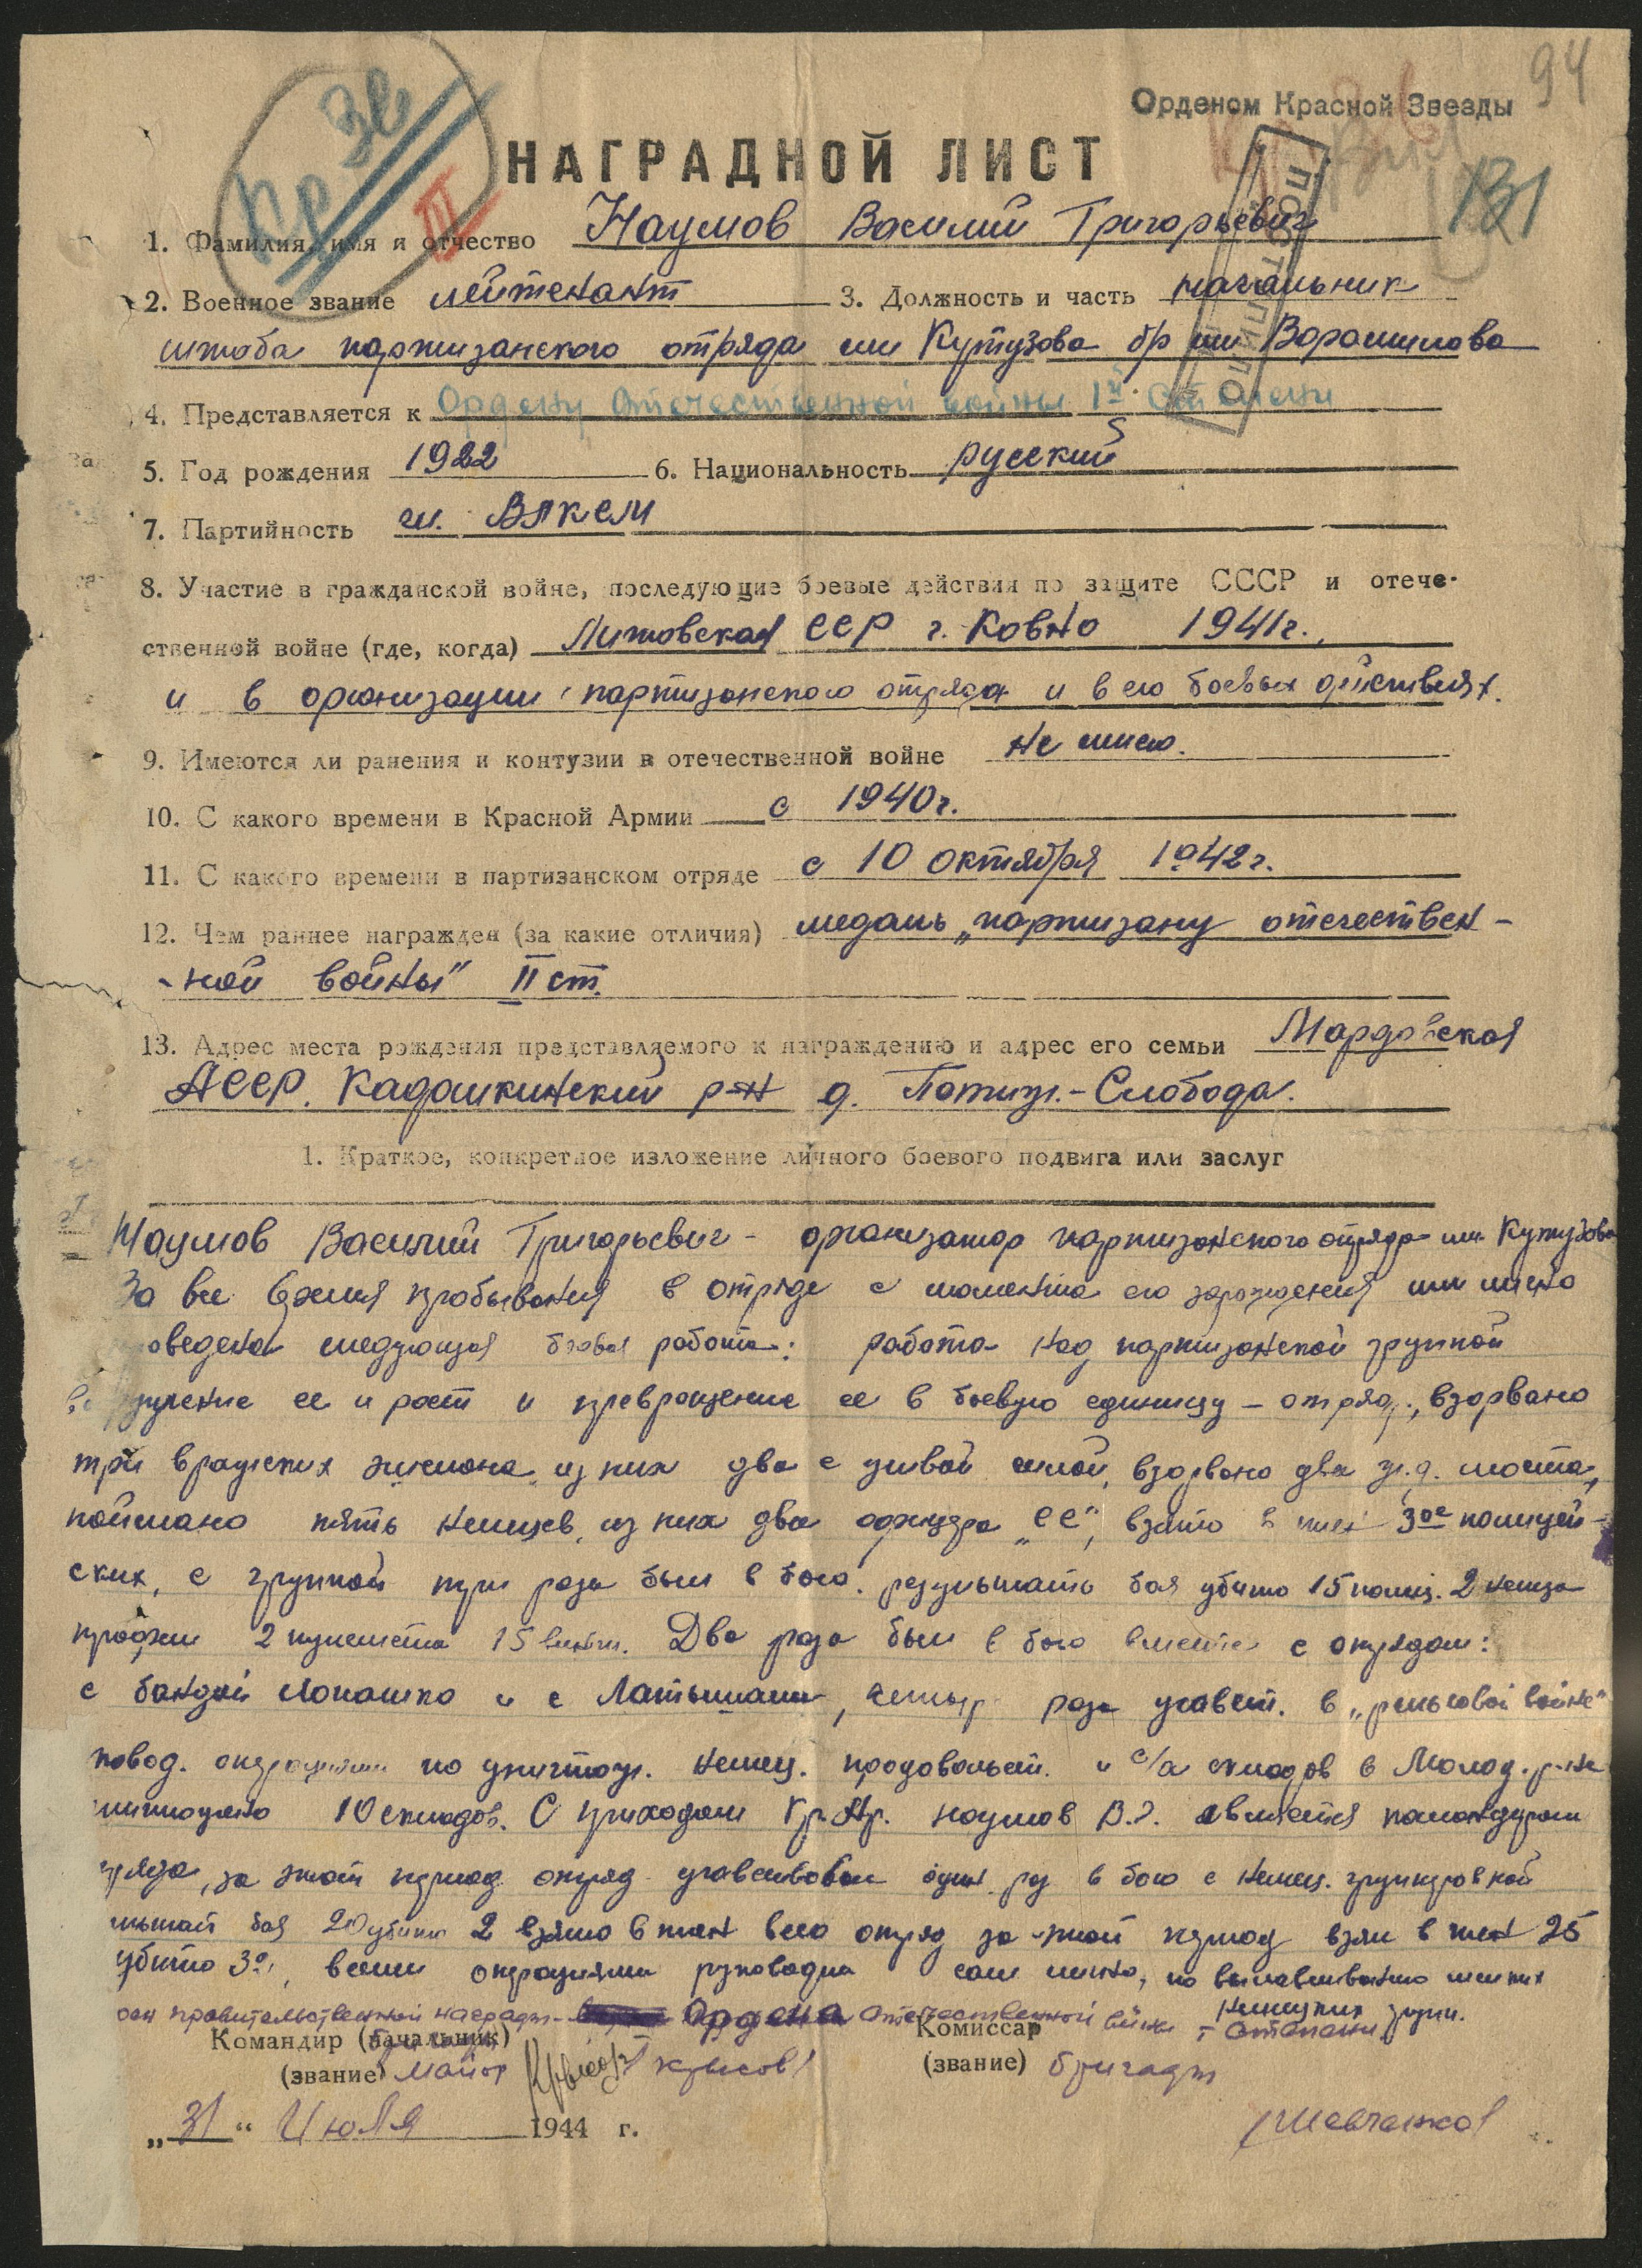 94
Орденом Красной Звезды
Кр Зв
НАГРАДНОЙ ЛИСТ
III
131
ПОСТУПИЛО
1. Фамилия, имя и отчество Наумов Василий Григорьевич
2. Военное звание лейтенант 3. Должность и часть начальник
штаба партизанского отряда им Кутузова бр им Ворошилова
4. Представляется к Ордену Отечественной войны 1й степени
5. Год рождения 1922 6. Национальность русский
7. Партийность чл. ВЛКСМ
8. Участие в гражданской войне, последующие боевые действия по защите СССР и отече-
ственной войне (где, когда) Литовская ССР г. Ковно 1941г.,
и в организации партизанского отряда и в его боевых действиях.
9. Имеются ли ранения и контузии в отечественной войне не имею.
10. С какого времени в Красной Армии с 1940г.
11. С какого времени в партизанском отряде с 10 октября 1942г.
12. Чем раннее награжден (за какие отличия) медаль „партизану отечествен-
-ной войны" II ст.
13. Адрес места рождения представляемого к награждению и адрес его семьи Мордовская
АССР. Кадошкинский р-н д. Потиж.-Слобода.
1. Краткое, конкретное изложение личного боевого подвига или заслуг
Наумов Василий Григорьевич - организатор партизанского отряда им Кутузова
За все время пребывания в отряде с момента его зарождения им лично
проведена следующая боевая работа: работа над партизанской группой
вооружение ее и рост и превращение ее в боевую единицу - отряд., взорвано
три вражеских эшелона из них два с живой силой, взорвано два ж.д. моста,
поймано пять немцев, из них два офицера „СС", взято в плен 3ое полицей-
ских, с группой три раза был в бою. результате боя убито 15 полиц. 2 немца
трофеи 2 пулемета 15 винт. Два раза был в бою вместе с отрядом:
с бандой Лопашко и с Латышами, четыр раза участ. в „рельсовой войне"
повод. операциями по уничтож. немец. продовольст. и с/х складов в Молод. р-не
уничтожено 10 складов. С приходом Кр. Ар. Наумов В.Г. является командиром
отряда, за этот период отряд участвовал один раз в бою с немец. группировкой
боя 20 убито 2 взято в плен всего отряд за этот период взял в плен 25
убито 30, всеми операциями руководил сам лично, по вылавливанию мелких
немецких групп.
правительственной награды - Ордена Отечественной войны I степени
Командир (начальник) Комиссар
(звание) Майор Крысов (звание) бригады
„31" Июля 1944 г. Шевченко